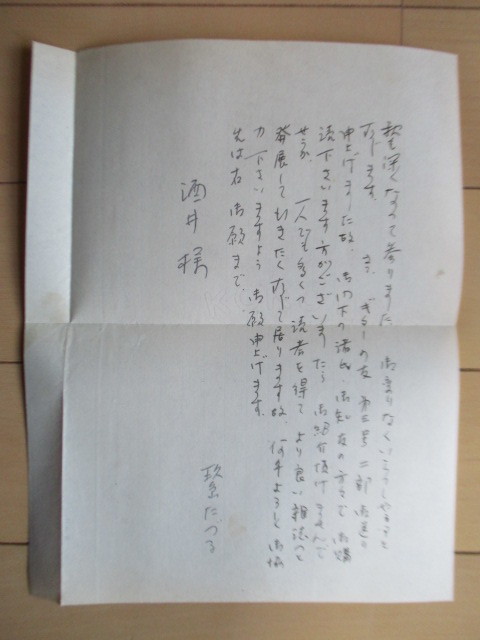 秋も深くなって参りました。お変りなくいらっしゃること
存じます。さて、ギターの友 第五号 二部 御送り
申上げました故、御門下の諸氏、御知友の方々で 御購
読下さいます方がございましたら 御紹介頂けませんで
せうか 一人でも多くの読者を得て より良い雑誌へと
発展して いきたく存じて居ります故、何卒よろしく御協
力下さいますよう 御願申上げます。
先は右 御願まで、
酒井様